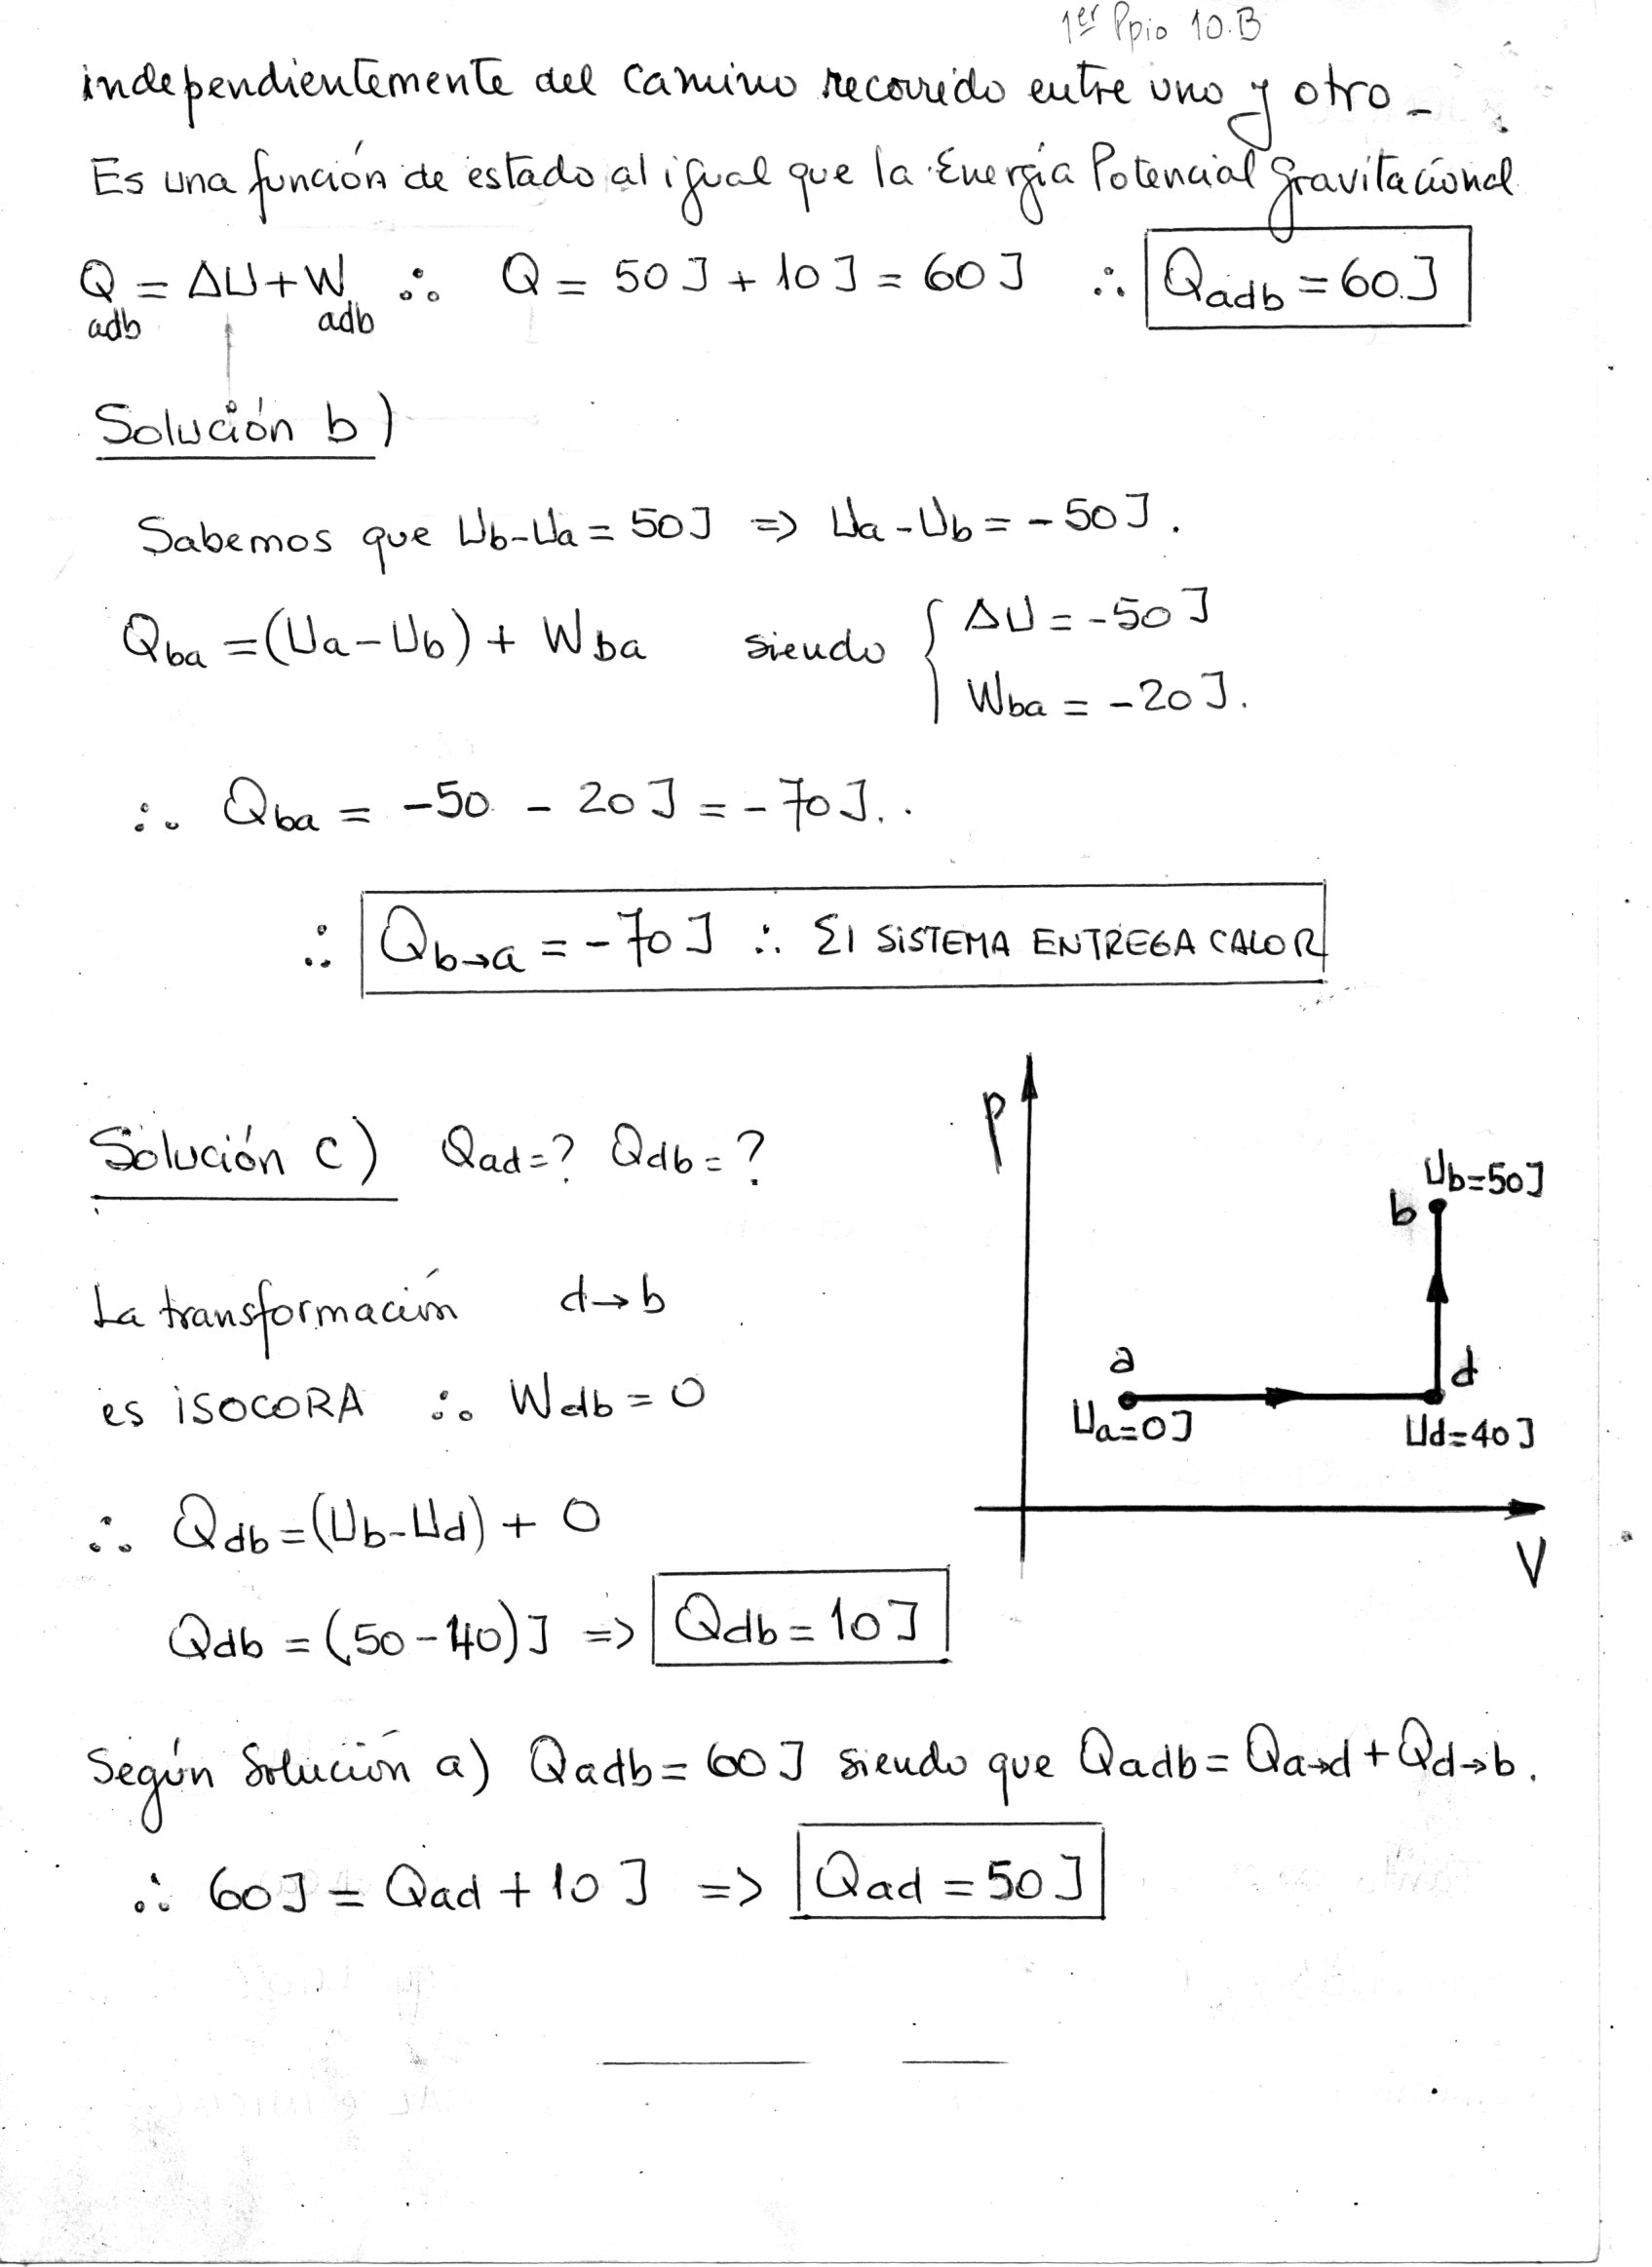 1er Ppio 10.B
independientemente del camino recorrido entre uno y otro_
Es una función de estado al igual que la Energía Potencial Gravitacional
Q adb = ΔU + W adb ∴ Q = 50 J + 10 J = 60 J ∴ Qadb = 60 J
Solución b)
Sabemos que Ub-Ua = 50 J => Ua-Ub = -50 J.
Qba = (Ua-Ub) + Wba siendo { ΔU = -50 J
Wba = -20 J.
∴ Qba = -50 - 20 J = -70 J.
∴ Qb→a = -70 J ∴ El SISTEMA ENTREGA CALOR
Solución c) Qad=? Qdb=?
P
Ub=50J
b
La transformación d→b
a
d
es ISOCORA ∴ Wdb = 0
Ua=0J
Ud=40J
∴ Qdb = (Ub-Ud) + 0
V
Qdb = (50-40) J => Qdb = 10 J
Según Solución a) Qadb = 60 J siendo que Qadb = Qa→d + Qd→b.
∴ 60 J = Qad + 10 J => Qad = 50 J